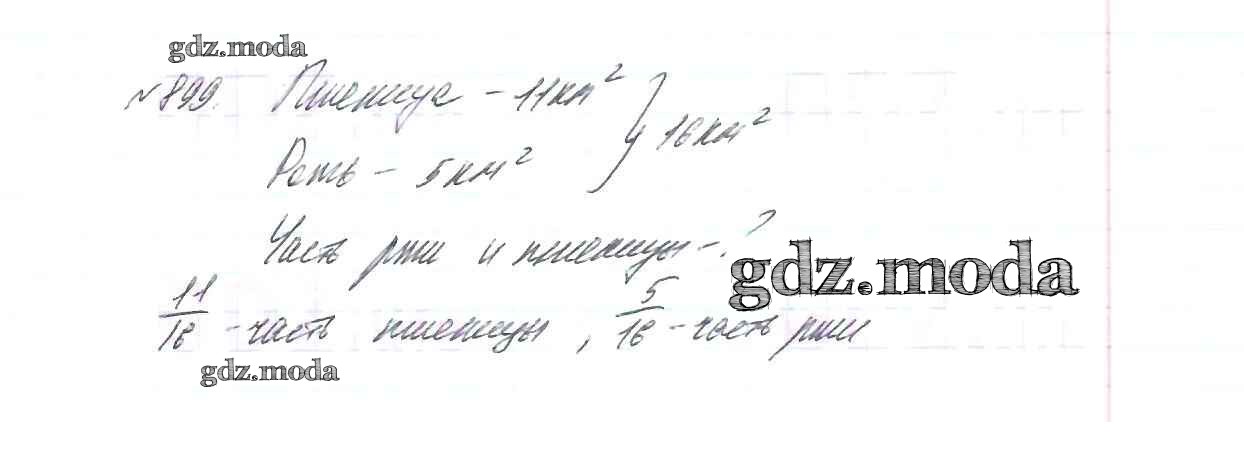 gdz.moda
№899. Пшеница – 11км²
Рожь – 5км² } 16км²
Часть ржи и пшеницы – ?
gdz.moda
11/16 – часть пшеницы, 5/16 – часть ржи
gdz.moda